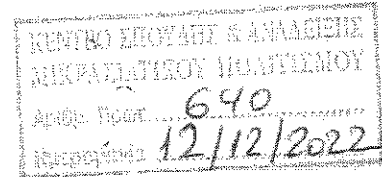 ΚΕΝΤΡΟ ΣΠΟΥΔΗΣ & ΑΝΑΔΕΙΞΗΣ
ΜΙΚΡΑΣΙΑΤΙΚΟΥ ΠΟΛΙΤΙΣΜΟΥ
Αριθμ. Πρωτ. 640
Ημερομηνία 12/12/2022